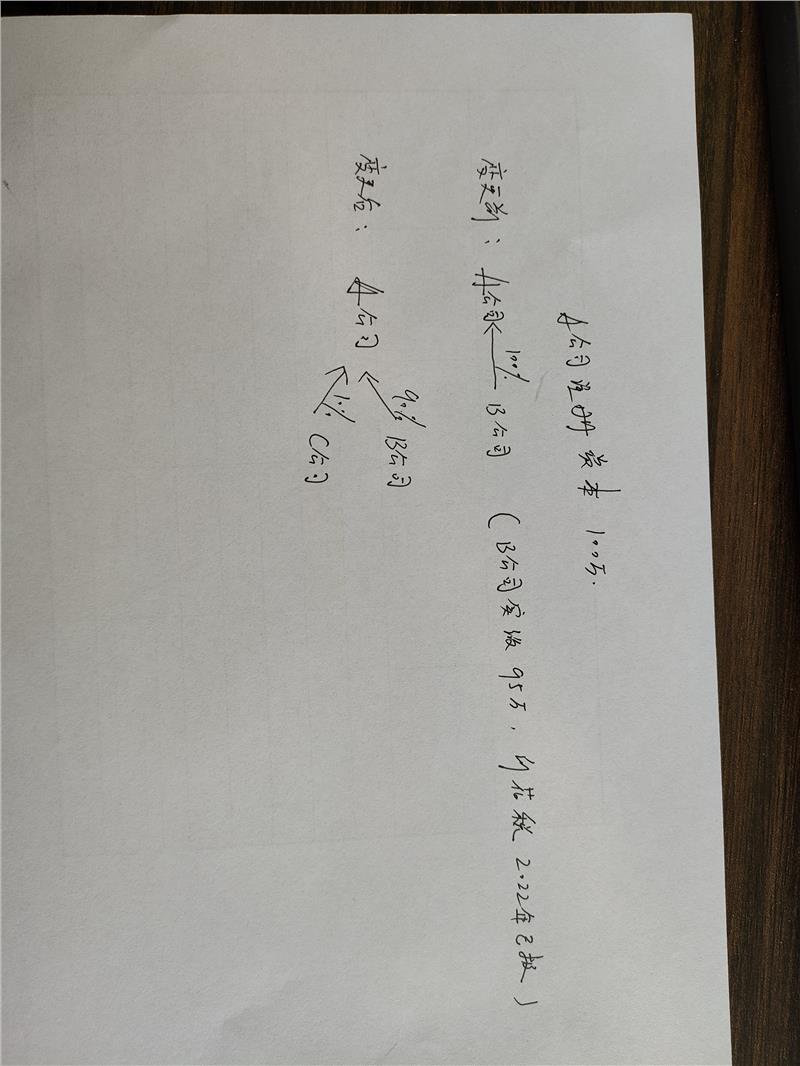 A公司注册资本100万.
变更前: A公司 100% B公司 (B公司实缴95万, 印花税2022年已报)
变更后: A公司 90% B公司
10% C公司